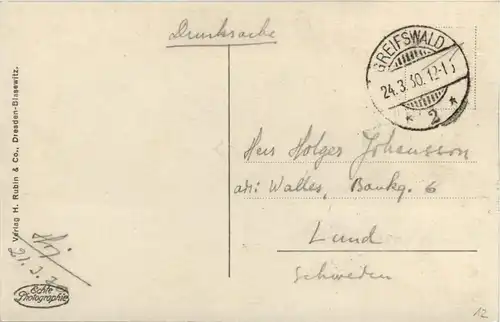 Drucksache
GREIFSWALD
24.3.30.12-1
* 2 *
Herr Holger Johansson
adr: Walles, Bankg. 6
Lund
Schweden
Verlag H. Rubin & Co., Dresden-Blasewitz.
21.3.
Echte
Photographie
12